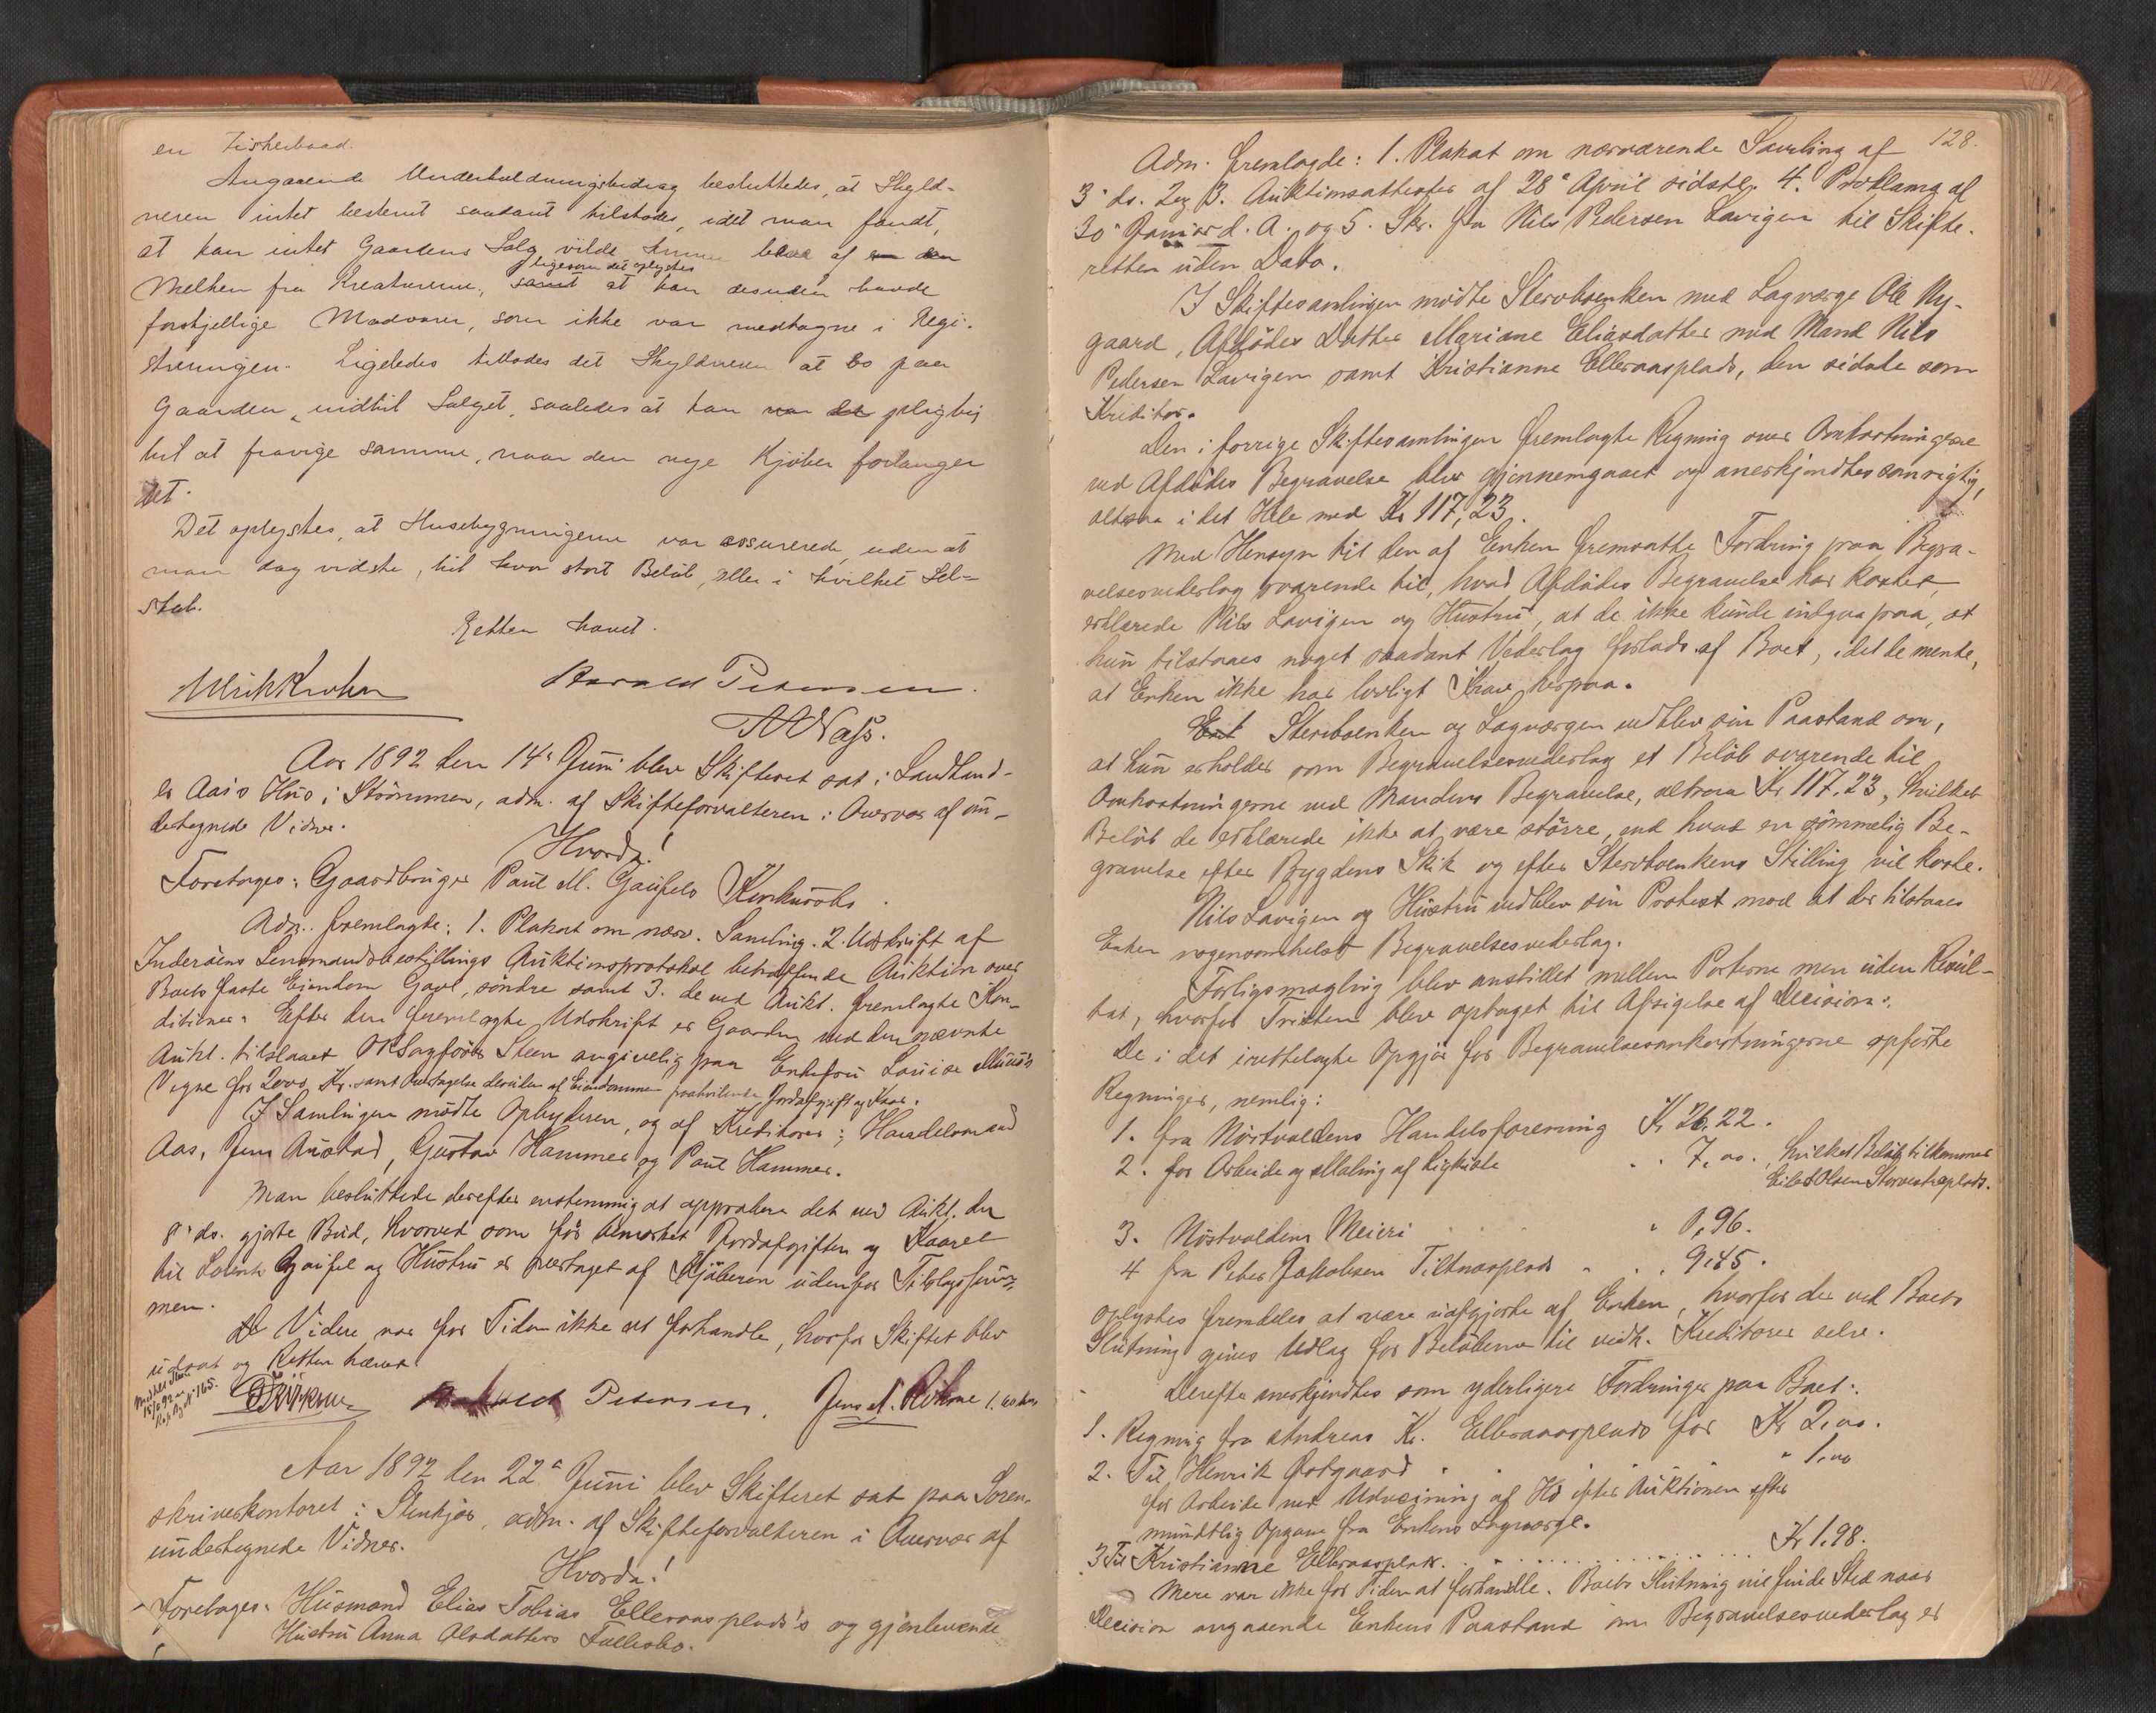 en Fiskerbaad.
Angaaende Underholdningsbidrag besluttedes, at Skyld-
neren intet bestemt saadant tilstodes, idet man fandt,
at han indtil Gaardens Salg vilde kunne leve af den
ligesom det oplystes
Melken fra Kreaturerne, samt at han desuden havde
forskjellige Madvarer, som ikke var medtagne i Regi-
streringen. Ligeledes tillodes det Skyldneren at bo paa
Gaarden indtil Salget, saaledes at han var pligtig
til at fravige samme, naar den nye Kjøber forlanger
det.
Det oplystes, at Husebygningerne var assurerede, uden at
man dog vidste, til hvor stort Beløb, eller i hvilket Sel-
skab.
Retten hævet.
Ulrik Krohn Harald Petersen.
Aar 1892 den 14de Juni blev Skifteret sat i Landhand-
ler Aas's Hus i Strömmen, adm. af Skifteforvalteren i Overvær af un-
dertegnede Vidner.
Hvorda!
Foretoges: Gaardbruger Paul M. Gaufels Konkursbo.
Adm. fremlagte: 1. Plakat om nærv. Samling. 2. Udskrift af
Inderøens Lensmandsbestillings Auktionsprotokol betræffende Auktion over
Boets faste Eiendom Gavl, söndre samt 3. de ved Aukt. fremlagte Kon-
ditioner. Efter den fremlagte Udskrift er Gaarden ved den nævnte
Aukt. tilslaaet Sagförer Steen angivelig paa Enkefru Louise
Vegne for 2000 Kr. samt Overtagelse desuden af Eiendommen paahvilende Jordafgift og Kaar.
I Samlingen mödte Opbyderen, og af Kreditorer: Handelsmand
Aas, Jens Austad, Gustav Hammer og Paul Hammer.
Man besluttede derefter enstemmig at approbere det ved Aukt. den
8de ds. gjorte Bud, hvorved som før bemærket Jordafgiften og Kaaret
til Gaufel og Hustru er overtaget af Kjøberen udenfor Tilslagssum-
men.
Videre var for Tiden ikke at forhandle, hvorfor Skiftet blev
udsat og Retten hævet.
Harald Petersen. Jens A.
Aar 1892 den 22de Juni blev Skifteret sat paa Soren-
skriverkontoret i Stenkjær, adm. af Skifteforvalteren i Overvær af
undertegnede Vidner.
Hvorda!
Foretoges: Husmand Elias Tobias Elleraasplads's og gjenlevende
Hustru Anna Olsdatters Fællesbo.
128.
Adm. fremlagde: 1. Plakat om nærværende Samling af
3de ds. 2 og 3. Auktionsattester af 28de April sidstl. 4. Proklama af
30 Januar d. A. og 5. Skr. fra Nils Pedersen Lavigen til Skifte-
retten uden Dato.
I Skiftesamlingen mödte Stervboenken med Lagværge Ole Ny-
gaard, Afdødes Datter Mariane Eliasdatter med Mand Nils
Pedersen Lavigen samt Kristianne Elleraasplads, den sidste som
Kreditor.
Den i forrige Skiftesamlingen fremlagte Regning over Omkostningerne
ved Afdødes Begravelse blev gjennemgaaet og anerkjendtes som rigtig,
altsaa i det Hele med Kr 117,23.
Med Hensyn til den af Enken fremsatte Fordring paa Begra-
velsesvederlag svarende til, hvad Afdødes Begravelse har kostet,
erklærede Nils Lavigen og Hustru, at de ikke kunde indgaa paa, at
hun tilstaaes noget saadant Vederlag forlods af Boet, idet de mente,
at Enken ikke har lovligt Krav herpaa.
Stervboenken og Lagværgen vedblev sin Paastand om,
at hun erholder som Begravelsesvederlag et Beløb svarende til
Omkostningerne ved Mandens Begravelse, altsaa Kr. 117,23, hvilket
Beløb de erklærede ikke at være større, end hvad en sømmelig Be-
gravelse efter Bygdens Skik og efter Stervboenkens Stilling vil koste.
Nils Lavigen og Hustru vedblev sin Protest mod at der tilstaaes
Enken nogensomhelst Begravelsesvederlag.
Forligsmægling blev anstillet mellem Parterne men uden Resul-
tat, hvorfor Tvisten blev optaget til Afsigelse af Decision.
De i det irettelagte Opgjør for Begravelsesomkostningerne opførte
Regninger, nemlig:
1. fra Nöstvoldens Handelsforening Kr 26.22.
2. for Arbeide og Maling af Ligkiste " 7,00, hvilket Beløb tilkommer
Eilert Olsen Storvestreplads.
3. Nöstvoldens Meieri " 0,96.
4 fra Peter Jakobsen Tiltnæsplads " 9,45.
oplystes fremdeles at være udgjorte af Enken, hvorfor der ved Boets
Slutning gives Udlag for Beløbene til vedk. Kreditorer selv.
Derefter anerkjendtes som yderligere Fordringer paa Boet:
1. Regning fra Andreas Kr. Elleraasplads for Kr 2,00.
2. Til Henrik " 1,00
for Arbeide ved Udveining af Hö efter Auktionen efter
mundtlig Opgave fra Enkens Lagværge.
3 Til Kristianne Elleraasplads. Kr 1,98.
Mere var ikke for Tiden at forhandle. Boets Slutning vil finde Sted naar
Decision angaaende Enkens Paastand om Begravelsesvederlag er